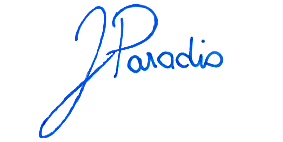 J Paradis